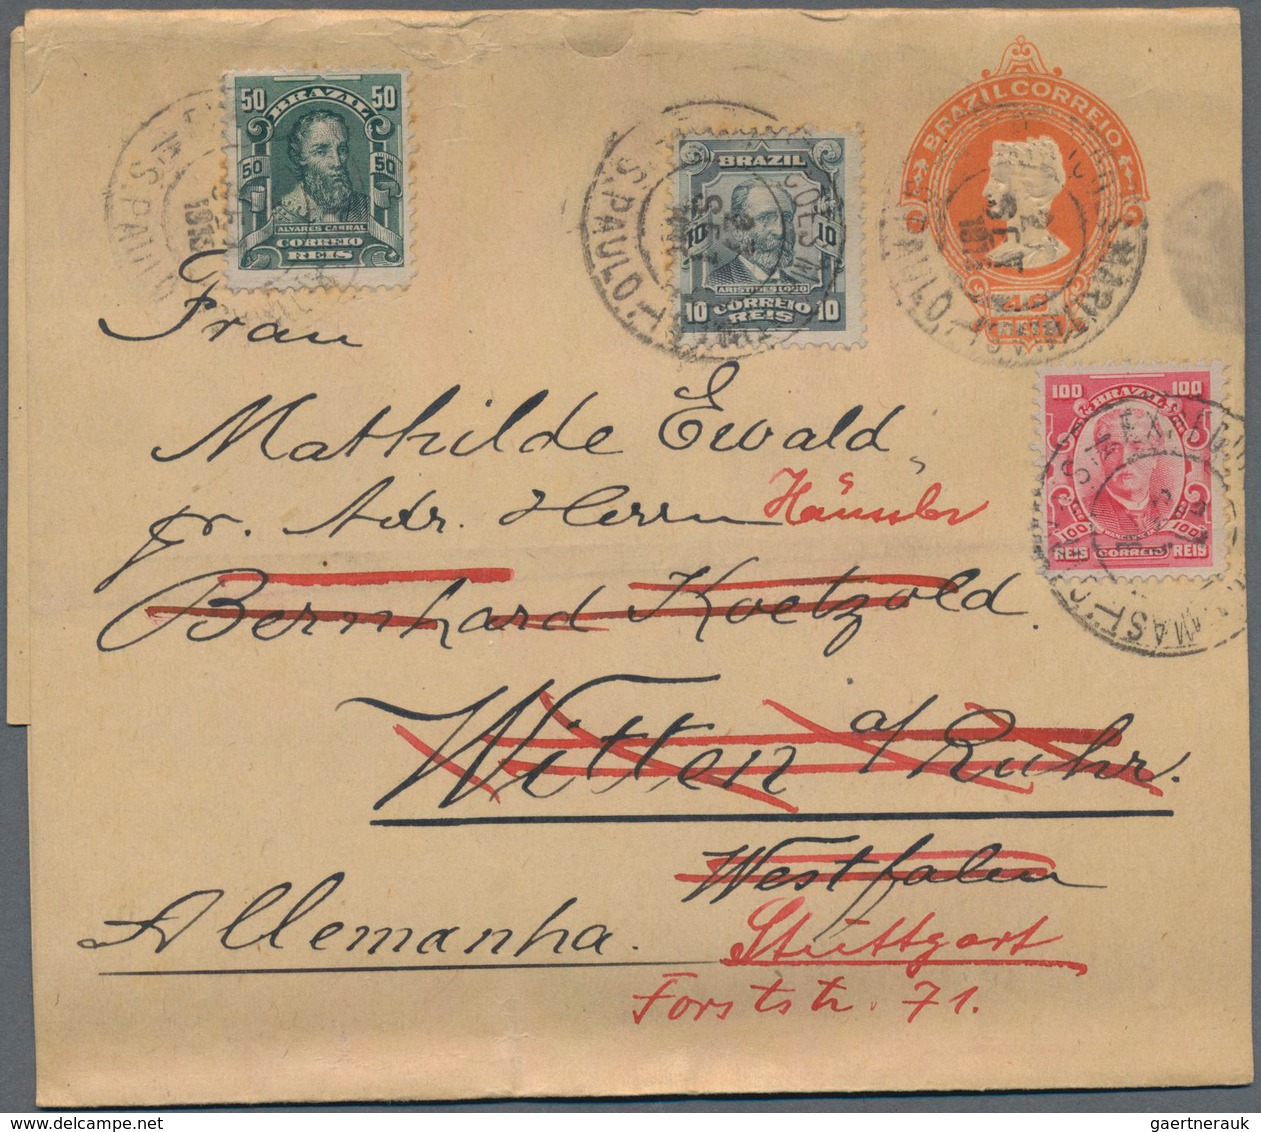 50 BRAZIL 50
50 50
ALVARES CABRAL
CORREIO
REIS
S.PAULO
BRAZIL
10 10
ARISTIDES LOBO
CORREIO
10 REIS 10
S.PAULO
BRAZIL CORREIO
S.PAULO
100 100
BRAZIL
100 100
REIS CORREIO REIS
Frau
Mathilde Ewald,
pr. Adr. Herrn Häussler
Bernhard Koetzold.
Witten a/Ruhr.
Westfalen
Allemanha. Stuttgart
Forststr. 71.
gaertnerauk